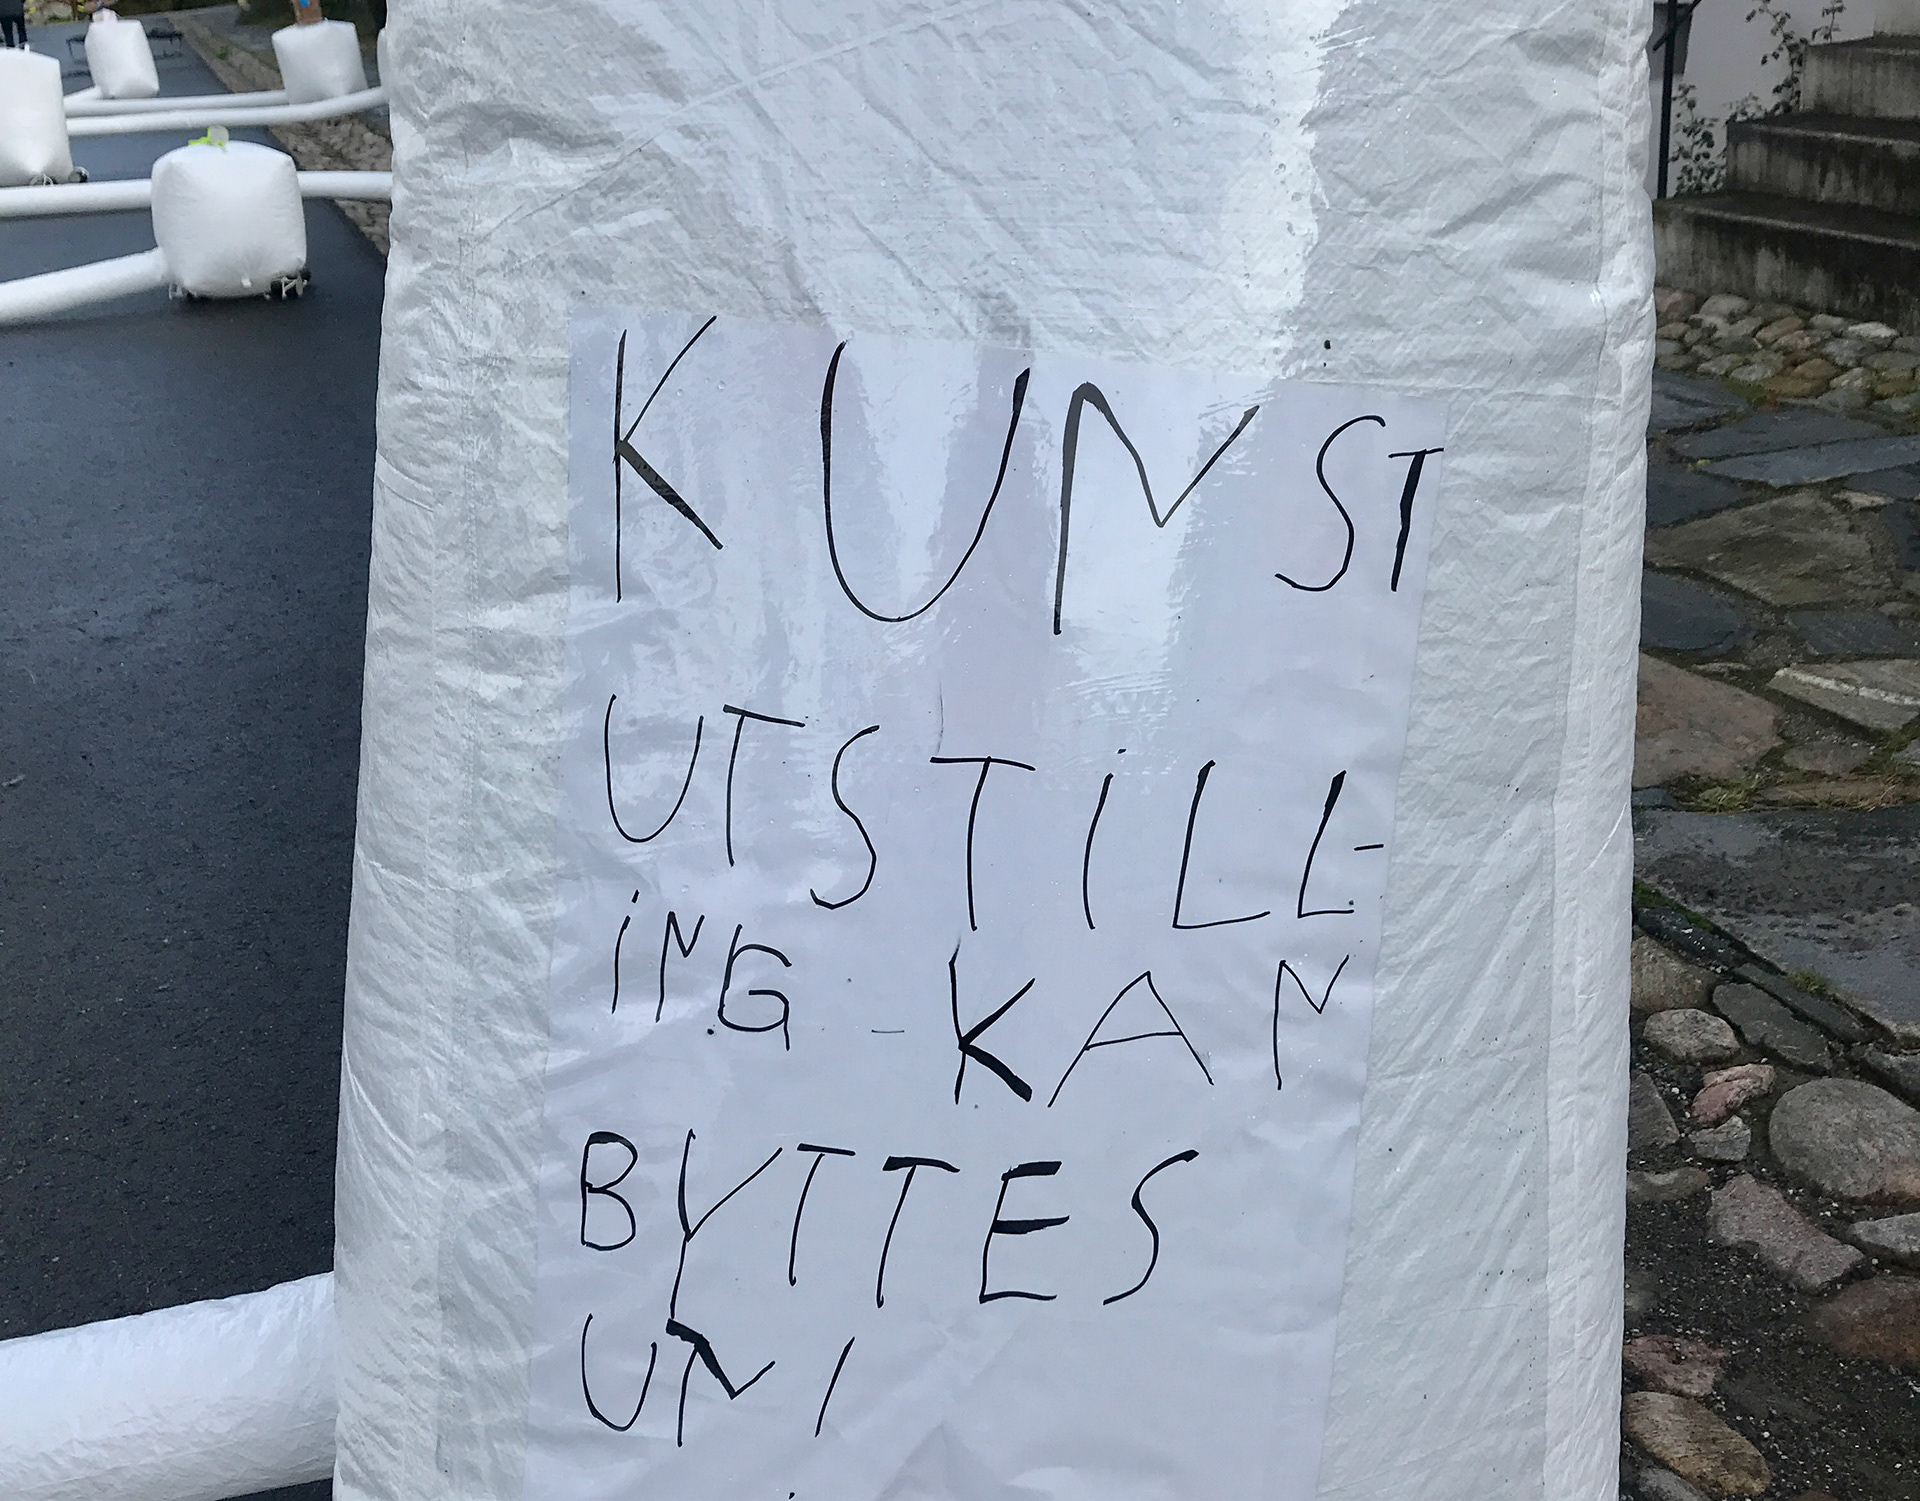 KUNST
UTSTILL-
iNG - KAN
BYTTES
UNI